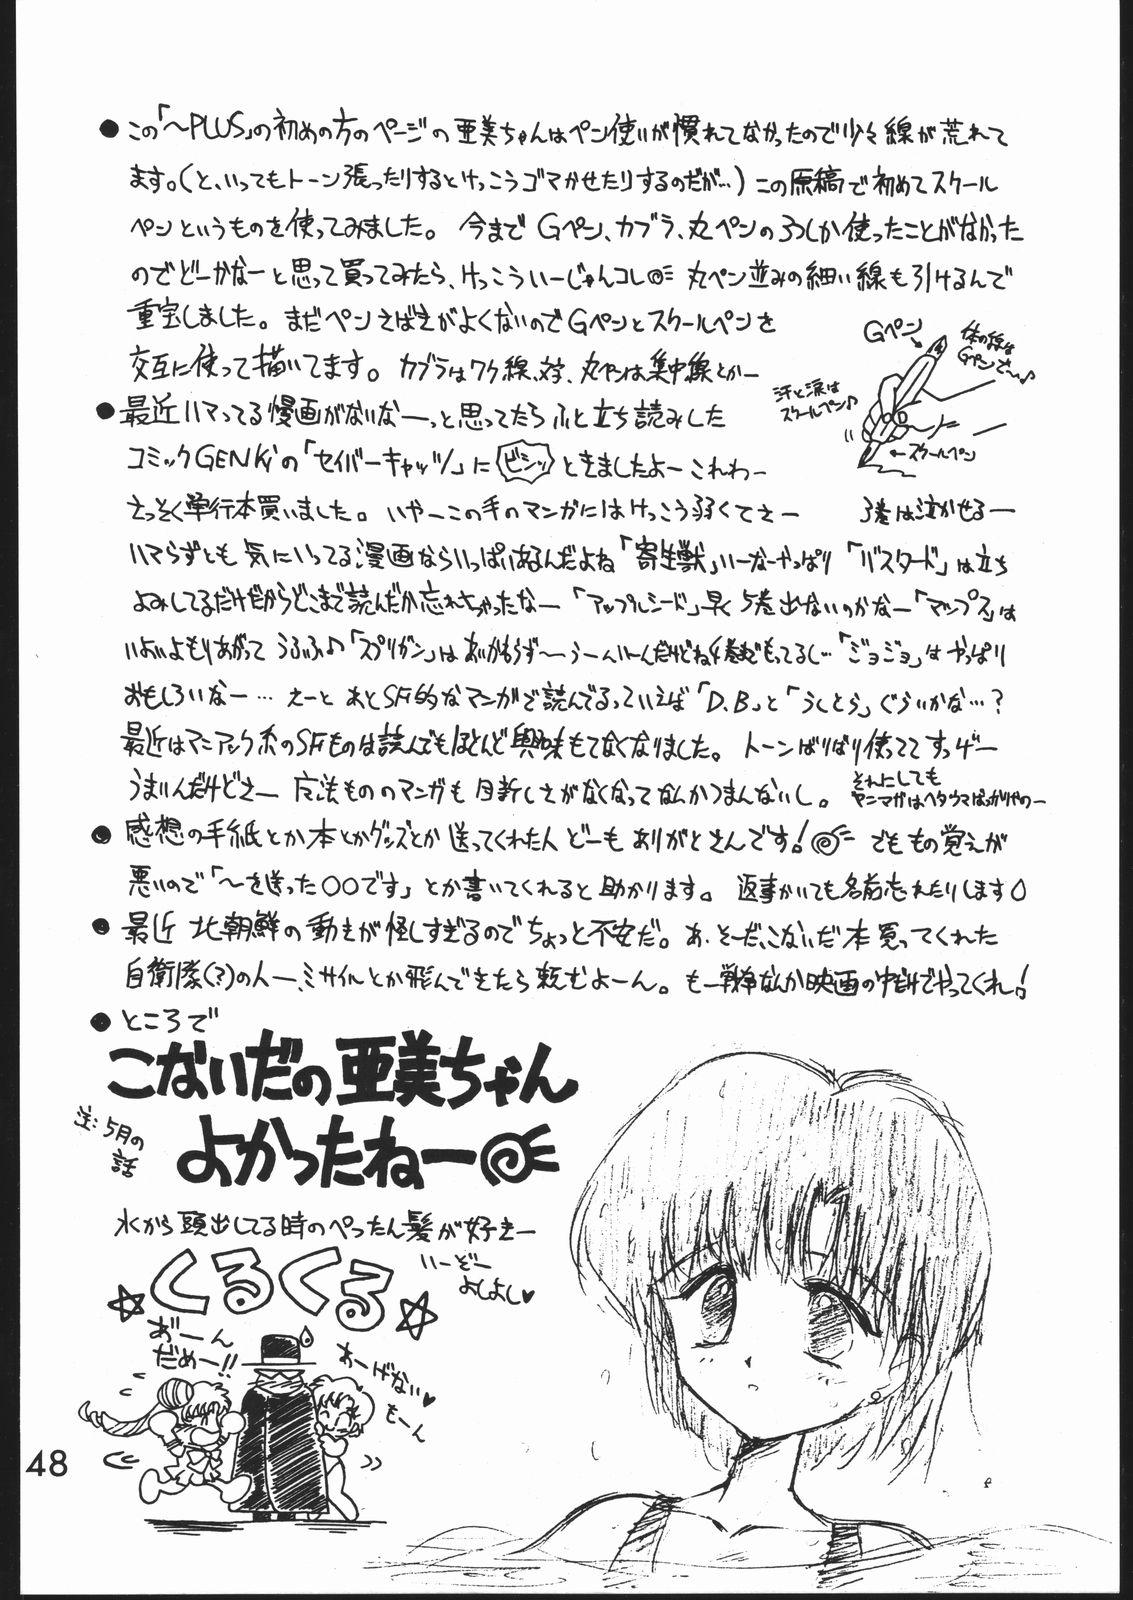 ●この「〜PLUS」の初めの方のページの亜美ちゃんはペン使いが慣れてなかったので少々線が荒れて
ます。(と、いってもトーン張ったりするとけっこうゴマかせたりするのだが…)この原稿で初めてスクール
ペンというものを使ってみました。今までGペン、カブラ、丸ペンの3つしか使ったことがなかった
のでどーかなーと思って買ってみたら、けっこういーじゃんコレ 丸ペン並みの細い線も引けるんで
重宝しました。まだペンさばきがよくないのでGペンとスクールペンを
交互に使って描いてます。カブラはワク線、丸ペンは集中線とかー
Gペン
体の線はGペンで…♪
汗と涙はスクールペン♪
←スクールペン
●最近ハマってる漫画がないなーっと思ってたらふと立ち読みした
コミックGENKiの「セイバーキャッツ」にビシッときましたよーこれわー
さっそく単行本買いました。いやーこの手のマンガにはけっこう弱くてさー 3巻は泣かせるー
ハマらずとも気にいってる漫画ならいっぱいあるんだよね「寄生獣」いーなーやっぱり「バスタード」は立ち
よみしてるだけだからどこまで読んだか忘れちゃったなー「アップルシード」早く5巻出ないのかなー「マップス」は
いよいよもりあがってうふふ♪「スプリガン」はあいかもらず〜うーんいーんだけどね4巻までもってるし…「ジョジョ」はやっぱり
おもしろいなー…えーとあとSF的なマンガで読んでるっていえば「D.B」と「うしとら」ぐらいかな…?
最近はマニアック系のSFものは読んでもほとんど興味もてなくなりました。トーンばりばり使っててすっげー
うまいんだけどさー 魔法もののマンガも目新しさがなくなってなんかつまんないし。
それにしても
ヤンマガはヘタウマばっかりやのー
●感想の手紙とか本とかグッズとか送ってくれた人どーもありがとさんです! でももの覚えが
悪いので「〜を送った○○です」とか書いてくれると助かります。返事かいても名前忘れたりします
●最近北朝鮮の動きが怪しすぎるのでちょっと不安だ。あ、そーだ、こないだ本買ってくれた
自衛隊(?)の人ー、ミサイルとか飛んできたら頼むよーん。もー戦争なんか映画の中だけでやってくれ!
●ところで
こないだの亜美ちゃん
よかったねー
注:5月の話
水から頭出してる時のぺったん髪が好きー
☆くるくる☆
いーどー
よしよし♥
あ゛ーん
だめー!!
あーげない♥
もーん
48